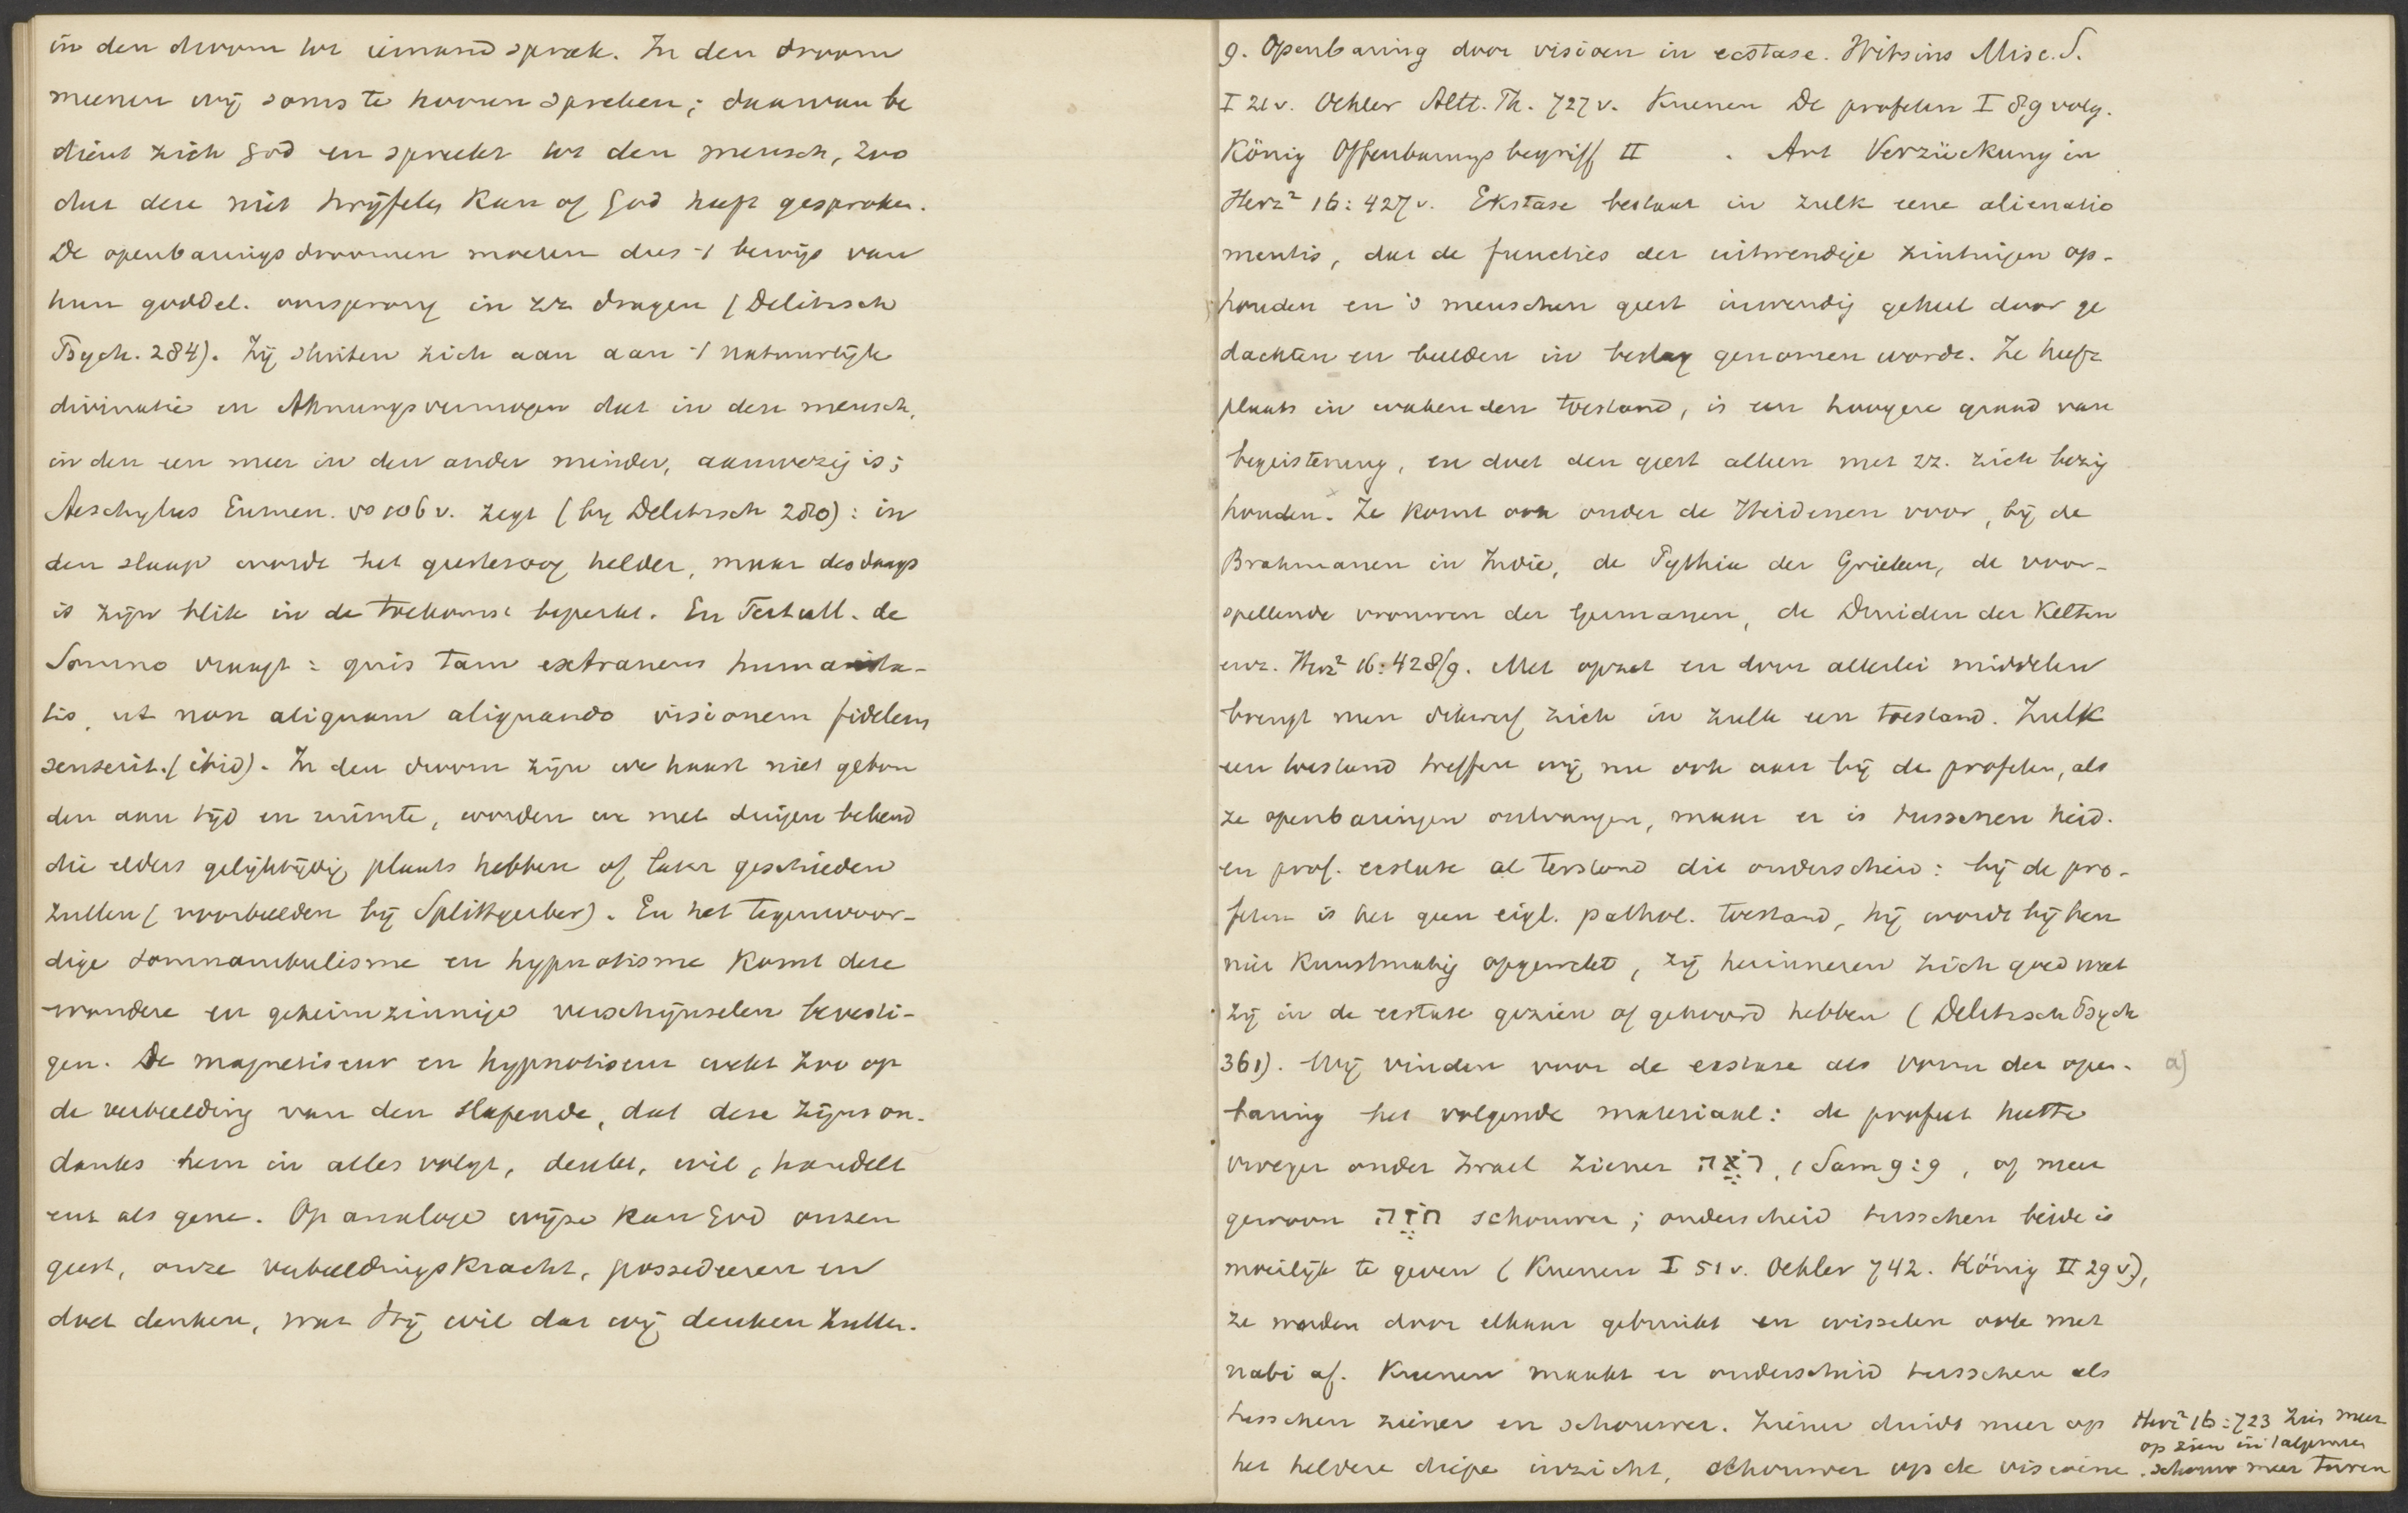 in den droom tot iemand sprak. In den droom
meenen wij soms te hooren spreken; daarvan be
dient zich God en spreekt tot den mensch, zoo
dat deze niet twijfelen kan of God heeft gesproken.
De openbaringsdroomen moeten dus -t bewijs van
hun goddel. oorsprong in zz. dragen (Delitzsch
Psych. 284). Zij sluiten zich aan aan -t natuurlijk
divinatie en Ahnungsvermogen dat in den mensch,
in den een meer in den ander minder, aanwezig is;
Aeschylus Eumen. vs 106 v. zegt (bij Delitzsch 280): in
den slaap wordt het geestesoog helder, maar des daags
is zijn blik in de toekomst beperkt. En Tertull. de
Somno vraagt: quis tam extraneus humanita-
tis, ut non aliquam aliquando visionem fidelem
senserit. (ibid). In den droom zijn we haast niet gebon
den aan tijd en ruimte, worden we met dingen bekend
die elders gelijktijdig plaats hebben of later geschieden
zullen (voorbeelden bij Splittgerber). En het tegenwoor-
dige somnambulisme en hypnotisme komt deze
wondere en geheimzinnige verschijnselen bevesti-
gen. De magnetiseur en hypnotiseur werkt zoo op
de verbeelding van den slapende, dat deze zijns on-
danks hem in alles volgt, denkt, wil, handelt
enz als gene. Op analoge wijze kan God onzen
geest, onze verbeeldingskracht, possedeeren en
doet denken, wat Hij wil dat wij denken zullen.
9. Openbaring door visioen in ecstase. Witsius Misc. S.
I 21 v. Oehler Altt. Th. 727 v. Kuenen De profeten I 89 volg.
König Offenbarungsbegriff II . Art Verzückung in
Herz² 16: 427 v. Ekstase bestaat in zulk eene alienatio
mentis, dat de functies der uitwendige zintuigen op-
houden en 's menschen geest inwendig geheel door ge
dachten en beelden in beslag genomen wordt. Ze heeft
plaats in wakenden toestand, is een hoogere graad van
begeistering, en doet den geest alleen met zz. zich bezig
houden. Ze komt ook onder de Heidenen voor, bij de
Brahmanen in Indië, de Pythia der Grieken, de voor-
spellende vrouwen der Germanen, de Druiden der Kelten
enz. Herz² 16: 428/9. Met opzet en door allerlei middelen
brengt men dikwerf zich in zulk een toestand. Zulk
een toestand treffen wij nu ook aan bij de profeten, als
ze openbaringen ontvangen, maar er is tusschen heid.
en prof. ecstase al terstond dit onderscheid: bij de pro-
feten is het geen eigl. pathol. toestand, hij wordt bij hen
niet kunstmatig opgewekt, zij herinneren zich goed wat
zij in de ecstase gezien of gehoord hebben (Delitzsch Psych
361). Wij vinden voor de ecstase als vorm der open- a)
baring het volgende materiaal: de profeet heette
vroeger onder Israel ziener רֹאֶה, 1 Sam 9:9, of meer
gewoon חֹזֶה schouwer; onderscheid tusschen beide is
moeilijk te geven (Kuenen I 51 v. Oehler 742. König II 29 v.),
ze worden door elkaar gebruikt en wisselen ook met
nabi af. Kuenen maakt er onderscheid tusschen als
tusschen ziener en schouwer. Ziener duidt meer op
het heldere diepe inzicht, schouwer op de visioene.
Herz² 16: 723 Zien meer
op zien in 't algemeen
schouw meer turen